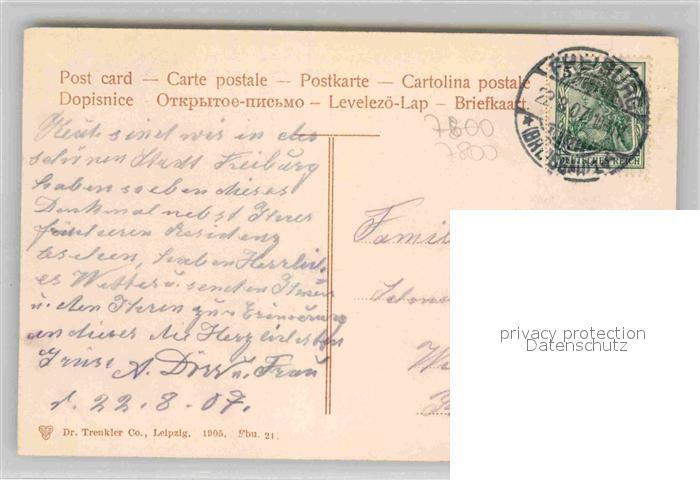 Post card — Carte postale — Postkarte — Cartolina postale
Dopisnice — Открытое-письмо — Levelezö-Lap — Briefkaart.
7800
7800
FREIBURG
22.8.07
(BREISGAU)
DEUTSCHES REICH
Heute sind wir in der
schönen Stadt Freiburg
haben soeben dieses
Denkmal nebst Ihrer
früheren Residenz
gesehen, haben Herrlich-
es Wetter u. senden Ihnen
u. den Ihren zur Erinnerung
an dieser die Herzlichsten
Grüße A. Dörr u. Frau
d. 22.8.07.
Famil
Dr. Trenkler Co., Leipzig. 1905. Fbu. 21.
privacy protection
Datenschutz